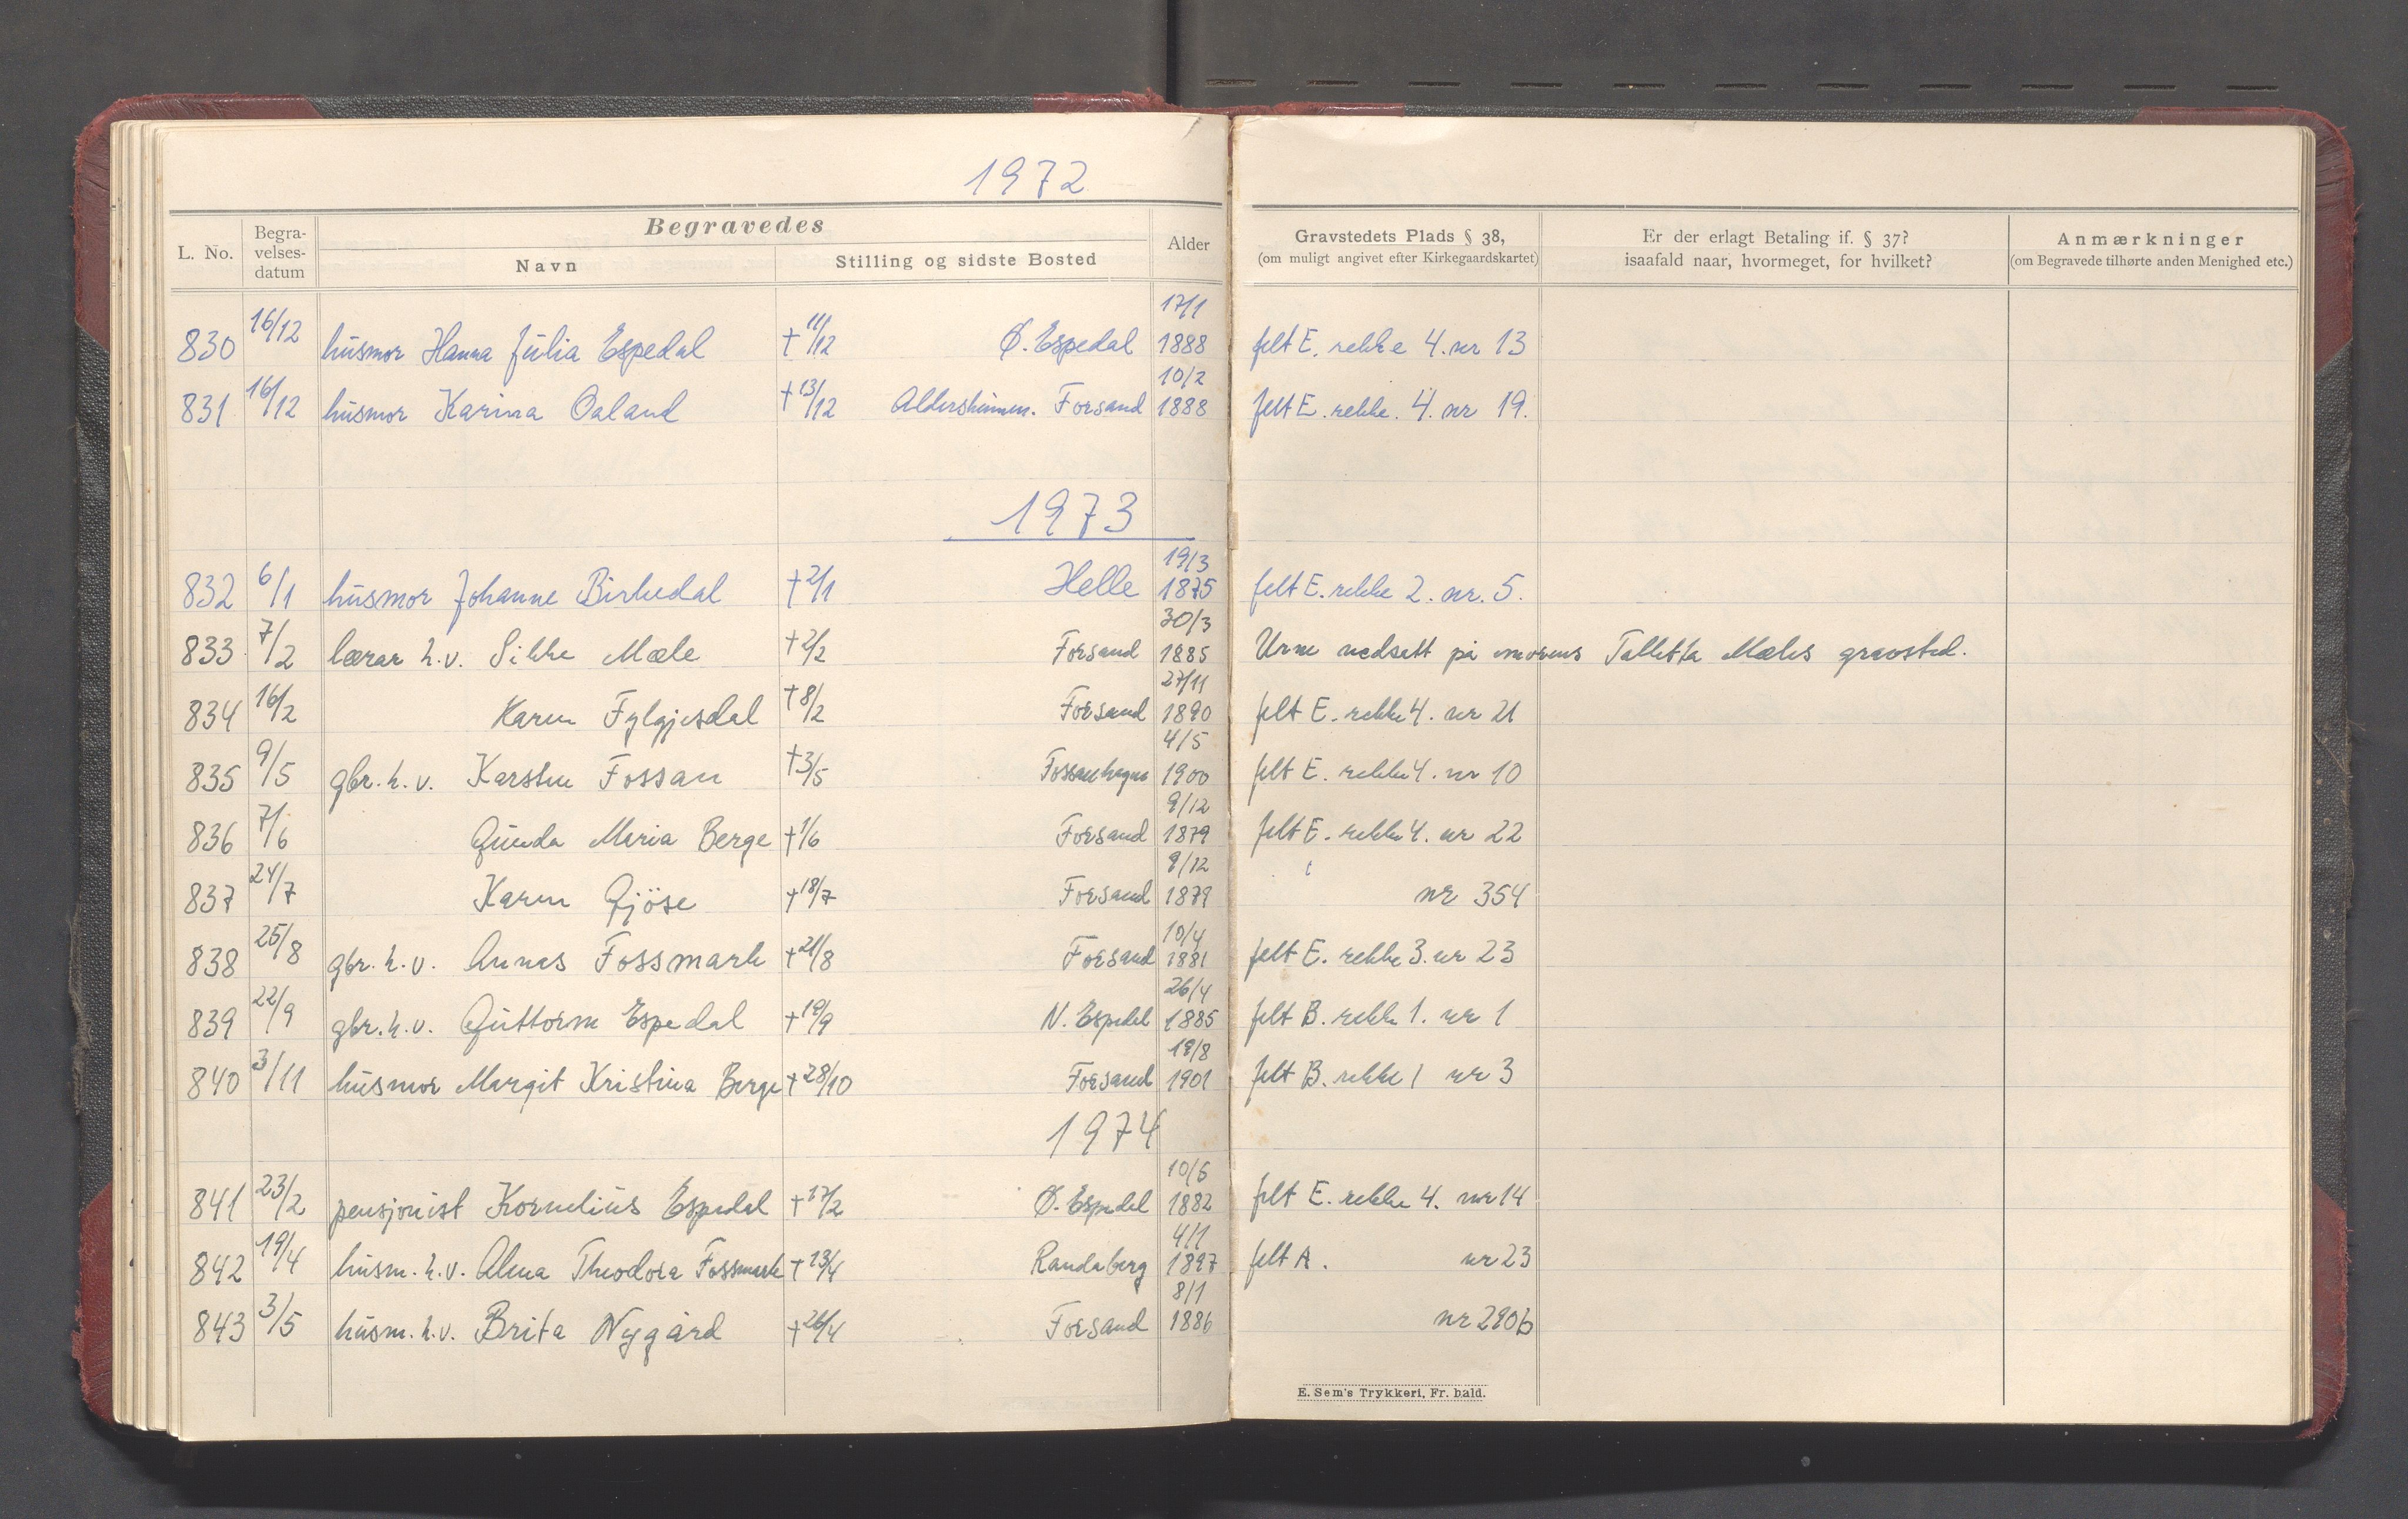 1972
L. No.
Begra-
velses-
datum
Begravedes
Navn
Stilling og sidste Bosted
Alder
Gravstedets Plads § 38,
(om muligt angivet efter Kirkegaardskartet)
Er der erlagt Betaling if. § 37?
isaafald naar, hvormeget, for hvilket?
Anmærkninger
(om Begravede tilhørte anden Menighed etc.)
830 16/12 husmor Hanna Julia Espedal † 11/12 Ø. Espedal 17/1 1888 felt E. rekke 4. nr 13
831 16/12 husmor Karina Oaland † 13/12 Aldersheimen. Forsand 10/2 1888 felt E. rekke. 4. nr 19.
1973
832 6/1 husmor Johanne Birkedal † 2/1 Helle 19/3 1875 felt E. rekke 2. nr. 5.
833 7/2 lærar h.v. Sikke Mæle † 2/2 Forsand 30/3 1885 Urne nedsett på morens Talletta Mæles gravsted.
834 16/2 Karen Fylgjesdal † 8/2 Forsand 27/11 1890 felt E. rekke 4. nr 21
835 9/5 gbr. h. v. Karsten Fossan † 3/5 4/5 1900 felt E. rekke 4. nr 10
836 7/6 Gunda Maria Berge † 1/6 Forsand 9/12 1879 felt E. rekke 4. nr 22
837 24/7 Karen Gjöse † 18/7 Forsand 9/12 1879 nr 354
838 25/8 gbr. h. v. Annas Fossmark † 21/8 Forsand 10/4 1881 felt E. rekke 3. nr 23
839 22/9 gbr. h. v. Guttorm Espedal † 19/9 N. Espedal 26/4 1885 felt B. rekke 1. nr 1
840 3/11 husmor Margit Kristina Berge † 28/10 Forsand 19/8 1901 felt B. rekke 1 nr 3
1974
841 23/2 pensjonist Kornelius Espedal † 17/2 Ø. Espedal 10/5 1882 felt E. rekke 4. nr 14
842 19/4 husm. h.v. Alma Theodora Fossmark † 13/4 Randaberg 4/1 1897 felt A. nr 23
843 3/5 husm. h.v. Brita Nygård † 26/4 Forsand 8/1 1886 nr 290b
E. Sem's Trykkeri, Fr.hald.